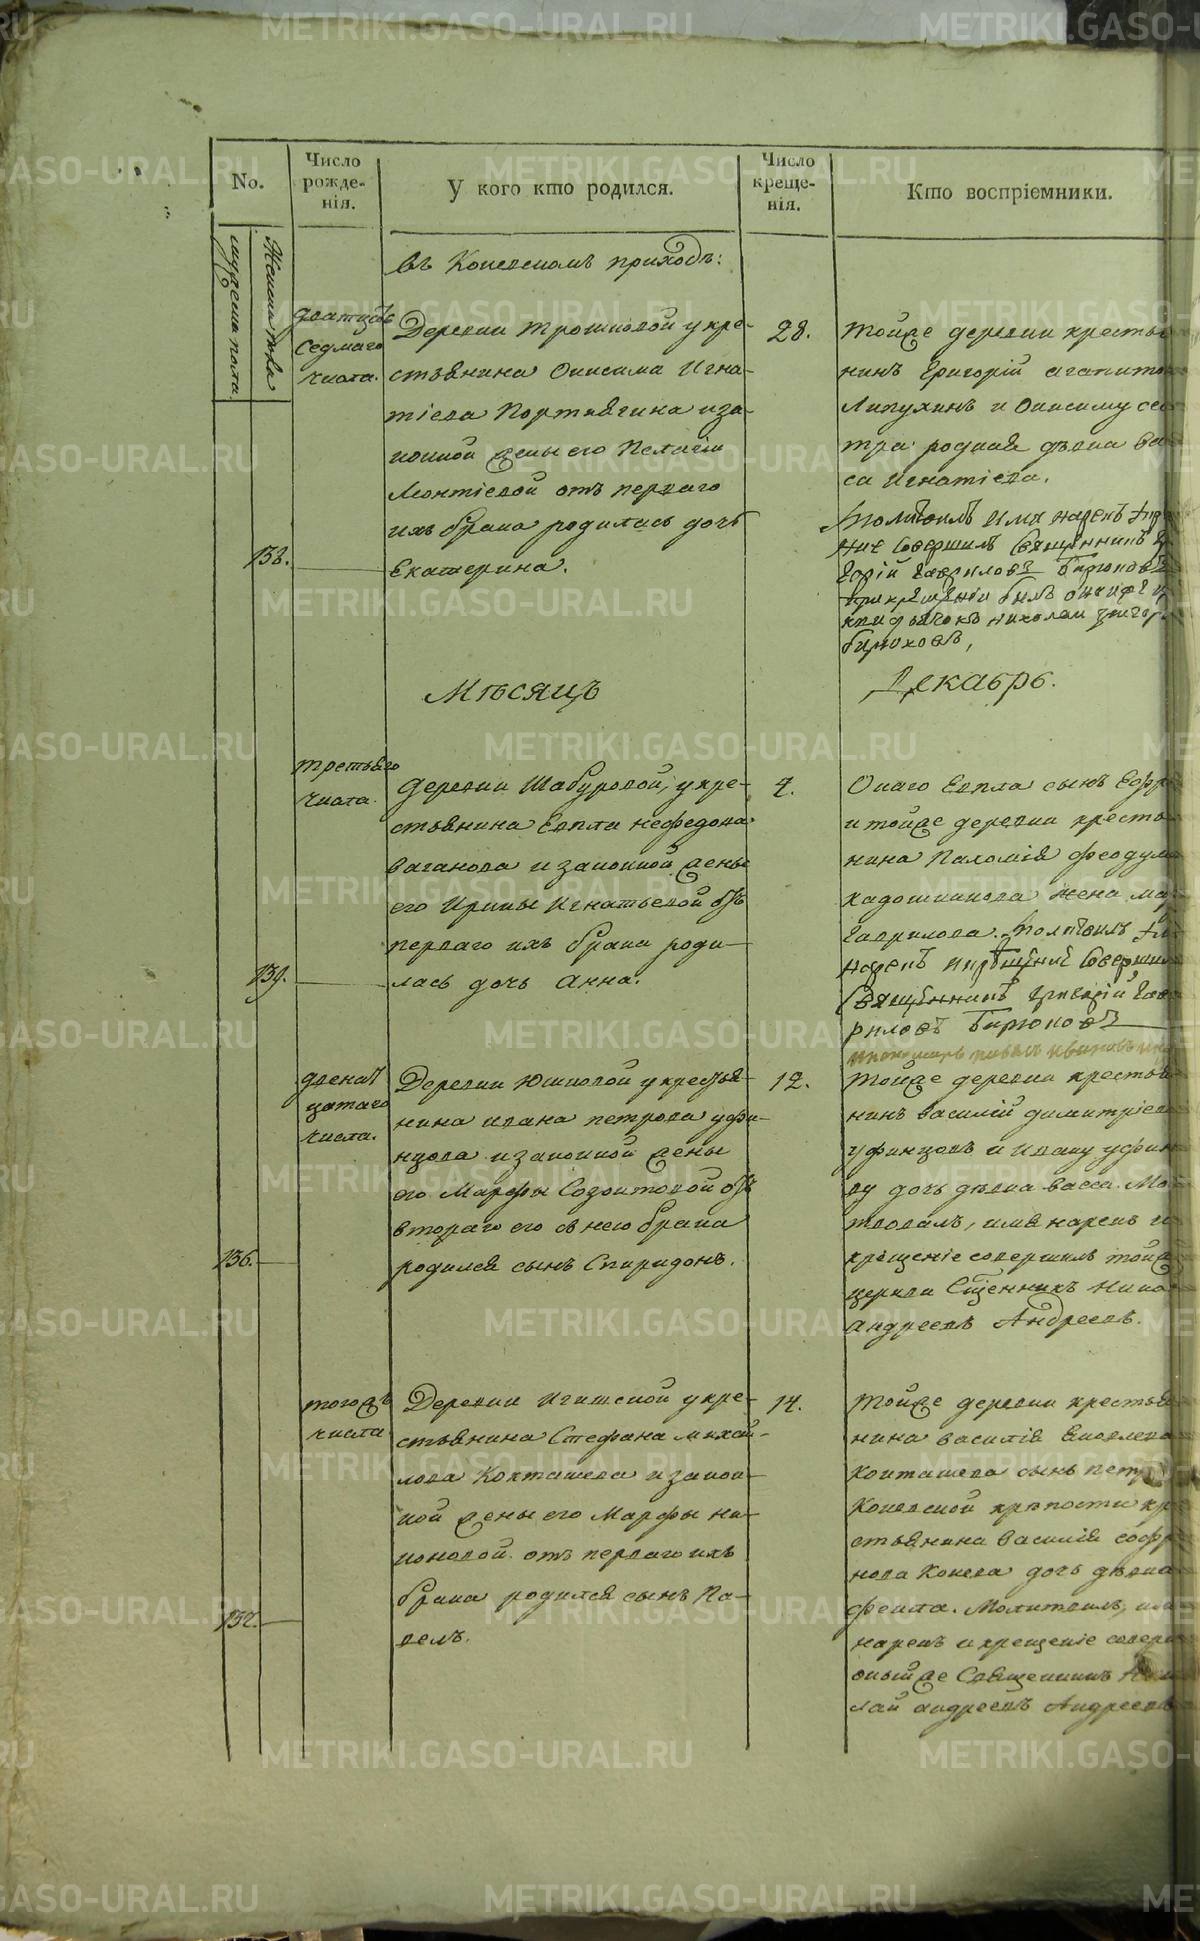 No.
Число
рожде-
нія.
У кого кто родился.
Число
креще-
нія.
Кто воспріемники.
мужеска пола
Женска
въ Коневскомъ приходѣ:
дватцать
седмаго
числа.
Деревни Трошковой у кре-
стьянина Онисима Игна-
тіева Портнягина и за-
конной жены его Пелагіи
Леонтіевой отъ перваго
ихъ брака родилась дочь
Екатерина.
138.
28.
Тойже деревни крестья
нинъ Григорій Агапитов
Липухинъ и Онисиму сес
тра родная дѣвка Ва
са Игнатіева.
Молитвилъ имя нарекъ
ніе совершилъ Священникъ
горій Гавриловъ Бирюковъ
при крещеніи былъ
дьячокъ Николай Григор
Бирюковъ,
Мѣсяцъ
Декабрь.
третьяго
числа.
Деревни Шабуровой, у кре-
стьянина Евпла Нефедова
Ваганова и законной жены
его Ирины Игнатьевой отъ
перваго ихъ брака роди-
лась дочь Анна.
139.
4.
Онаго Евпла сынъ Ефр
и тойже деревни крестья
нина Пахомія Феодула
Кадошникова жена Мар
Гаврилова. Молитвилъ
нарекъ и крещеніе совершил
Священникъ Григорій Гав
риловъ Бирюковъ
двенат
цатаго
числа.
Деревни Юшковой у крестья-
нина Ивана Петрова Уфи-
нцова и законной жены
его Марфы Созонтовой отъ
втораго его с нею брака
родился сынъ Спиридонъ.
136.
12.
Тойже деревни крестья
нинъ Василій Димитріев
Уфинцовъ и Ивану Уфин
ву дочь дѣвка Васса. Мо
твовалъ, имя нарекъ и
крещеніе совершилъ той
церкви Сщенникъ Нико
Андреевъ Андреевъ.
тогожъ
числа
Деревни Игишской у кре-
стьянина Стефана Михай-
лова Кокташева и закон-
ной жены его Марфы Ни-
коновой. отъ перваго ихъ
брака родился сынъ Па-
велъ.
137.
14.
Тойже деревни крестья
нина Василія Яковлева
Кокташева сынъ Петр
Коневской крѣпости кр
стьянина Василія Софр
нова Конева дочь дѣвка
Фекла. Молитвилъ, им
нарекъ и крещеніе совер
оныйже Священникъ Нико
лай Андреевъ Андреевъ
METRIKI.GASO-URAL.RU